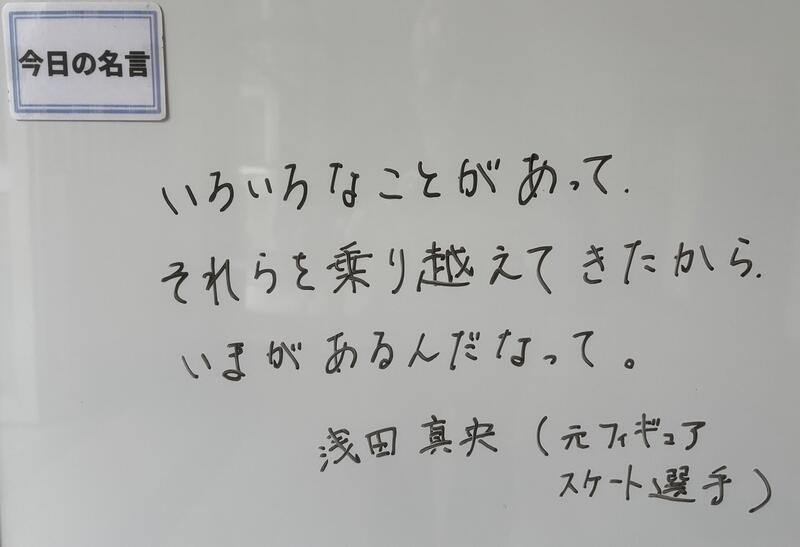 今日の名言
いろいろなことがあって、
それらを乗り越えてきたから、
いまがあるんだなって。
浅田真央(元フィギュア
スケート選手)